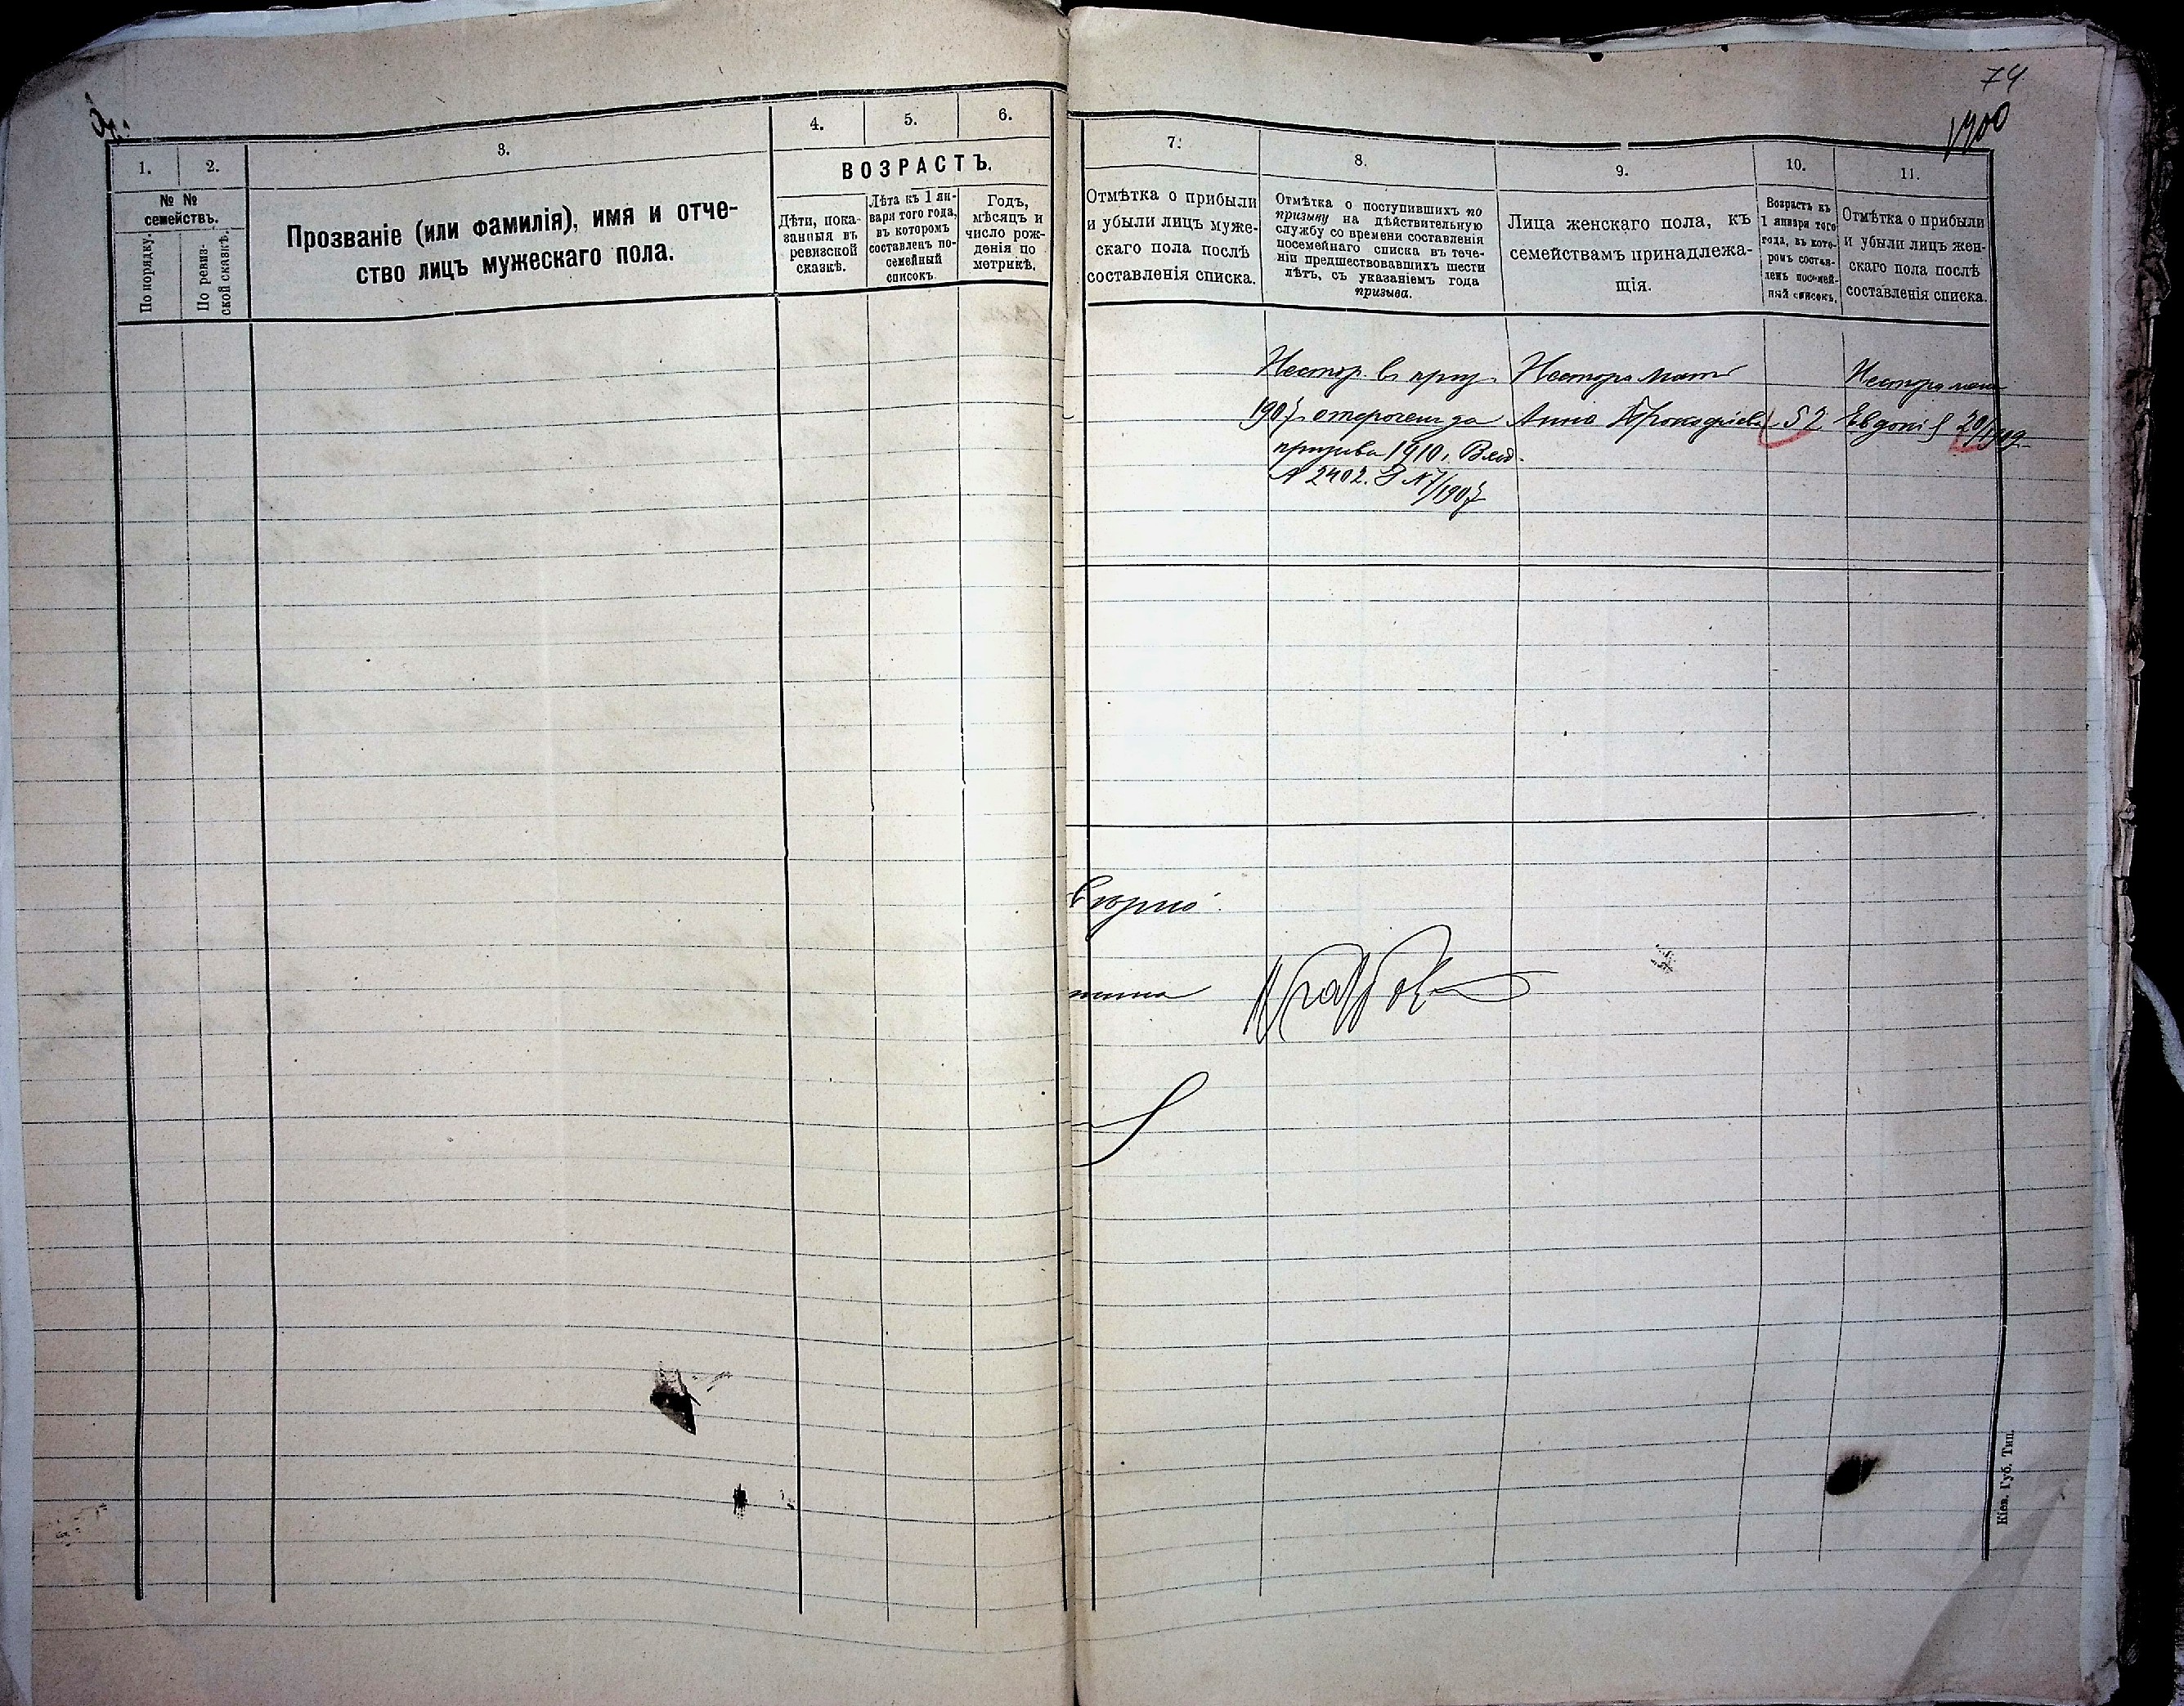 1.
2.
3.
4.
5.
6.
№ №
семействъ.
По порядку.
По ревиз-
ской сказкѣ.
Прозваніе (или фамилія), имя и отче-
ство лицъ мужескаго пола.
ВОЗРАСТЪ.
Дѣти, пока-
занныя въ
ревизской
сказкѣ.
Лѣта къ 1 ян-
варя того года,
въ которомъ
составленъ по-
семейный
списокъ.
Годъ,
мѣсяцъ и
число рож-
денія по
метрикѣ.
74
7.
8.
9.
10.
11.
Отмѣтка о прибыли
и убыли лицъ муже-
скаго пола послѣ
составленія списка.
Отмѣтка о поступившихъ по
призыву на дѣйствительную
службу со времени составленія
посемейнаго списка въ тече-
ніи предшествовавшихъ шести
лѣтъ, съ указаніемъ года
призыва.
Лица женскаго пола, къ
семействамъ принадлежа-
щія.
Возрастъ къ
1 января того
года, въ кото-
ромъ состав-
ленъ посемей-
ный списокъ.
Отмѣтка о прибыли
и убыли лицъ жен-
скаго пола послѣ
составленія списка.
Нестор в приз.
1907 отсрочен до
призыва 1910.
№ 2402.
Нестора мать
Анна Прокофіева
52
Нестора
Евдокі
Кіев. Губ. Тип.